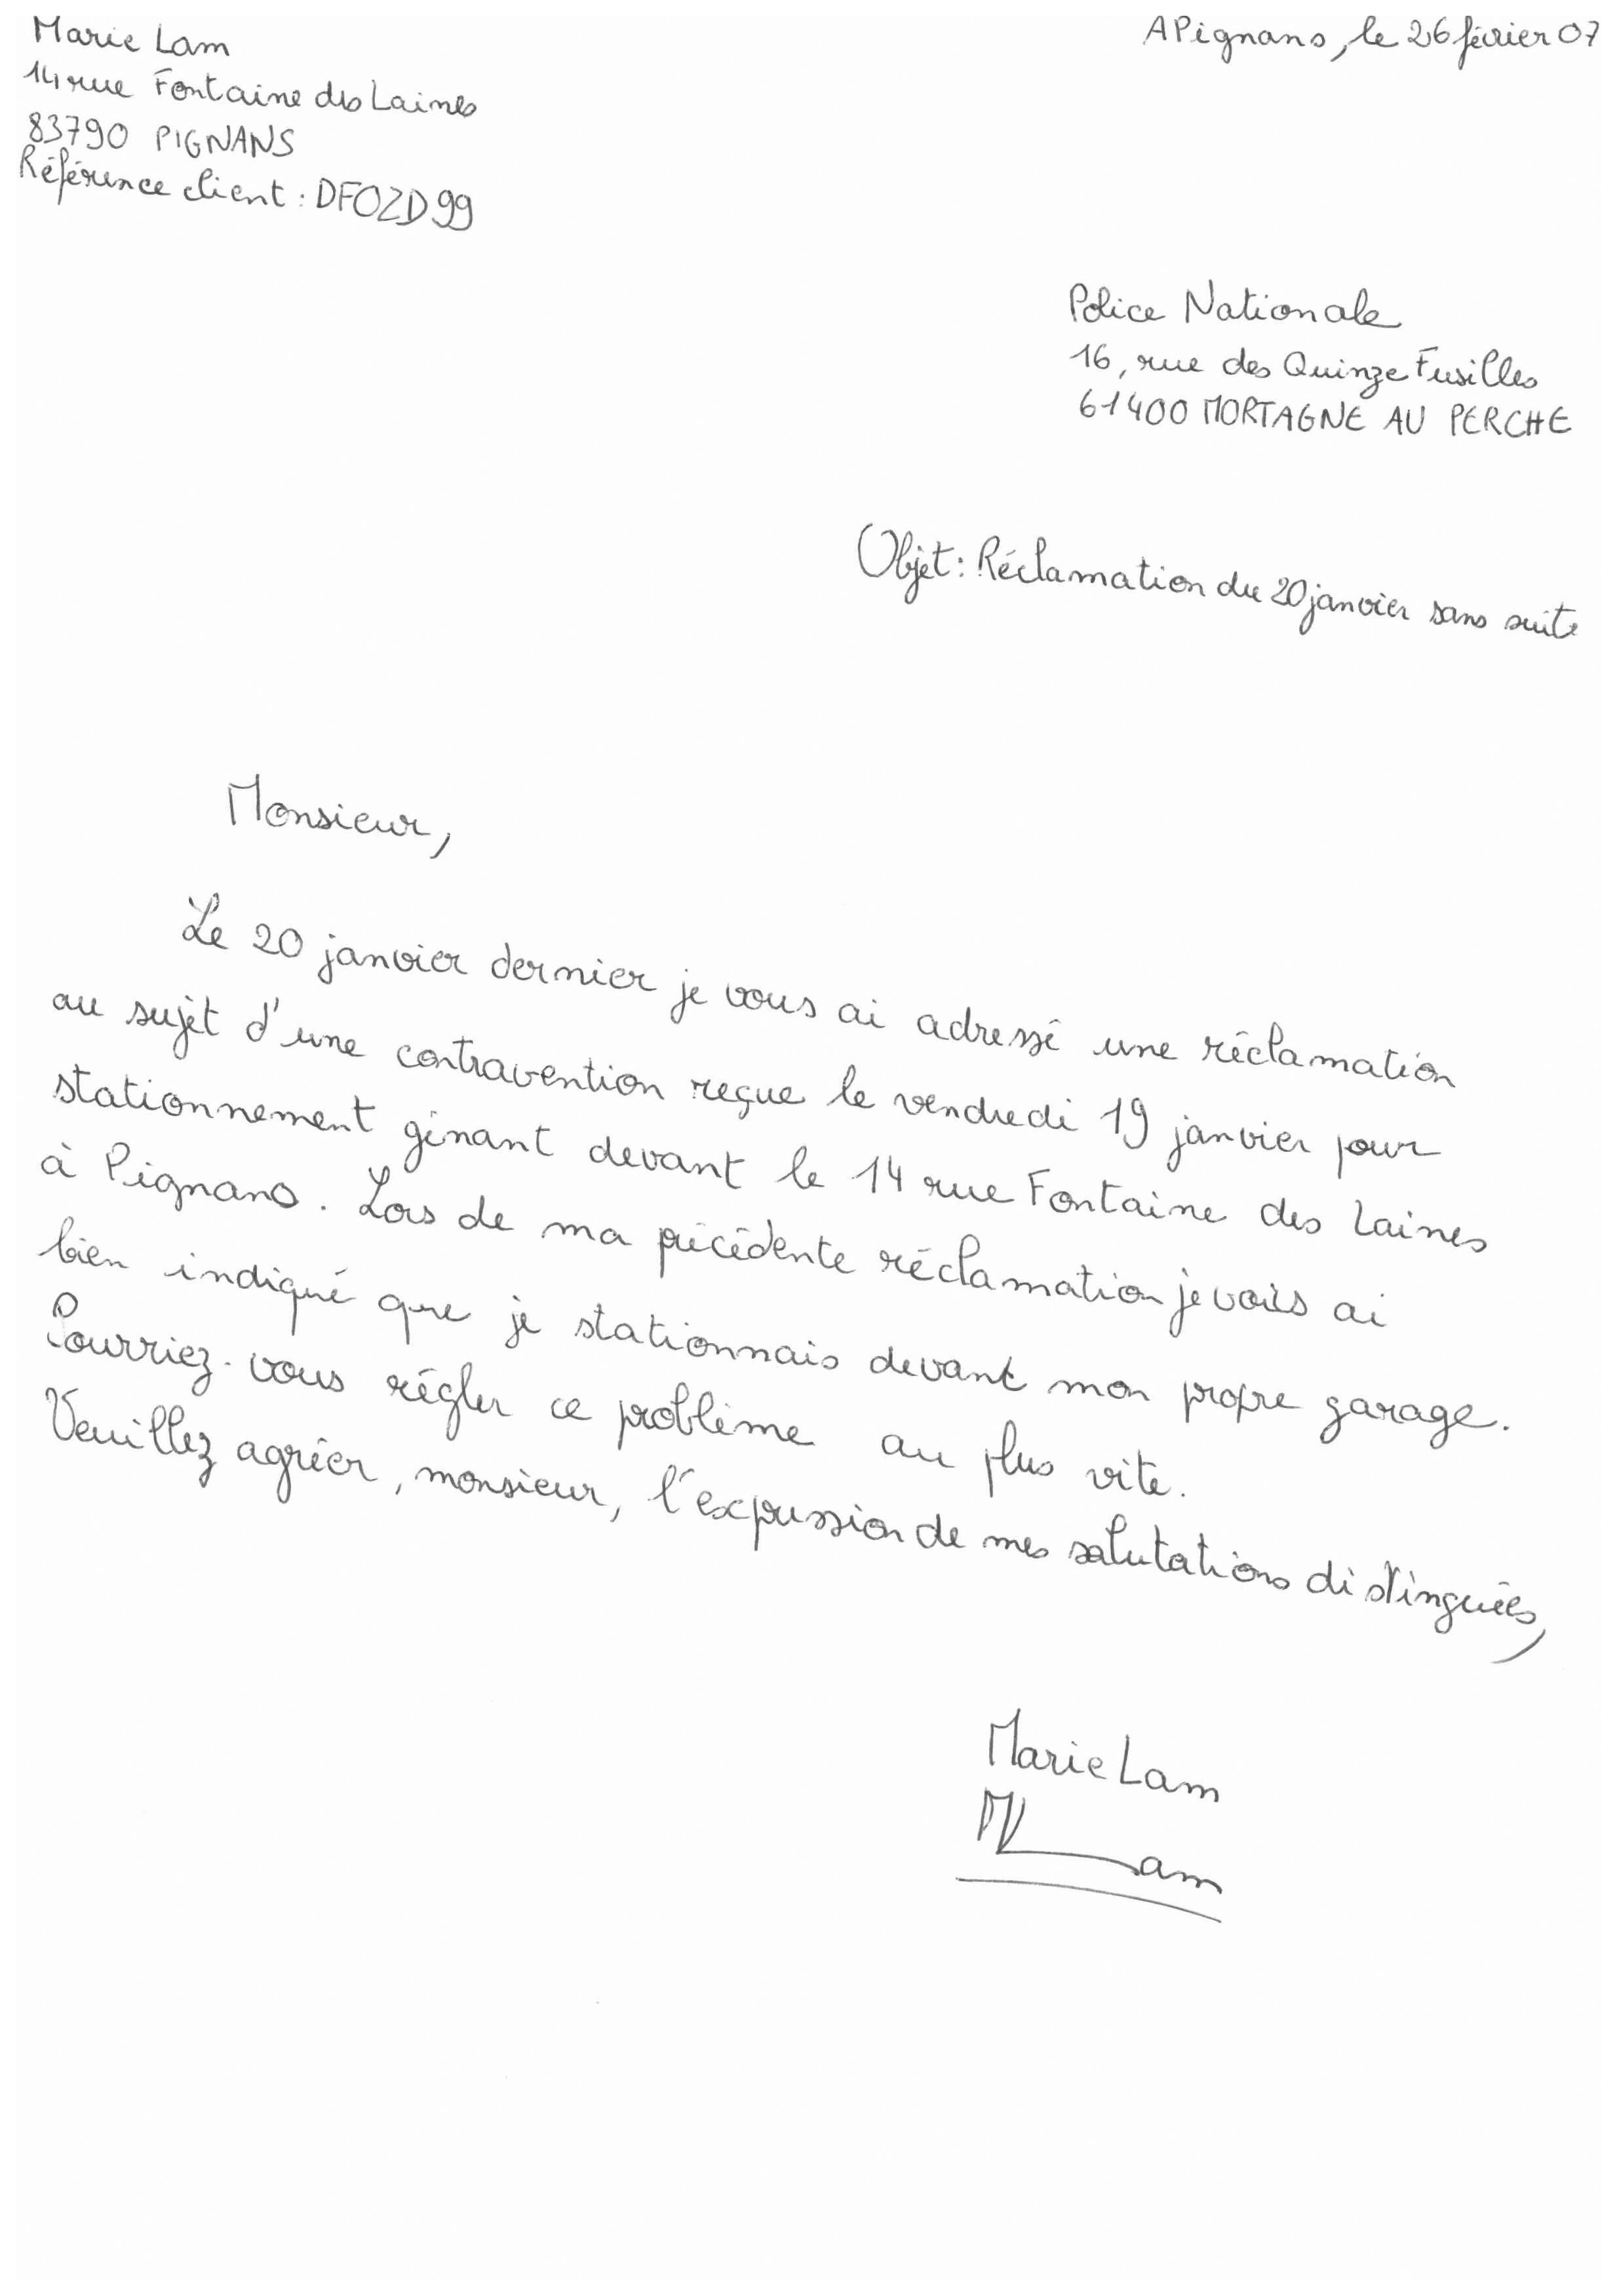 Marie Lam
14 rue Fontaine des Laines
83790 PIGNANS
Référence client : DFOZD99
A Pignans, le 26 février 07
Police Nationale
16, rue des Quinze Fusilles
61400 MORTAGNE AU PERCHE
Objet : Réclamation du 20 janvier sans suite
Monsieur,
Le 20 janvier dernier je vous ai adressé une réclamation
au sujet d'une contravention reçue le vendredi 19 janvier pour
stationnement gênant devant le 14 rue Fontaine des Laines
à Pignans. Lors de ma précédente réclamation je vous ai
bien indiqué que je stationnais devant mon propre garage.
Pourriez-vous régler ce problème au plus vite.
Veuillez agréer, monsieur, l'expression de mes salutations distinguées,
Marie Lam
MLam